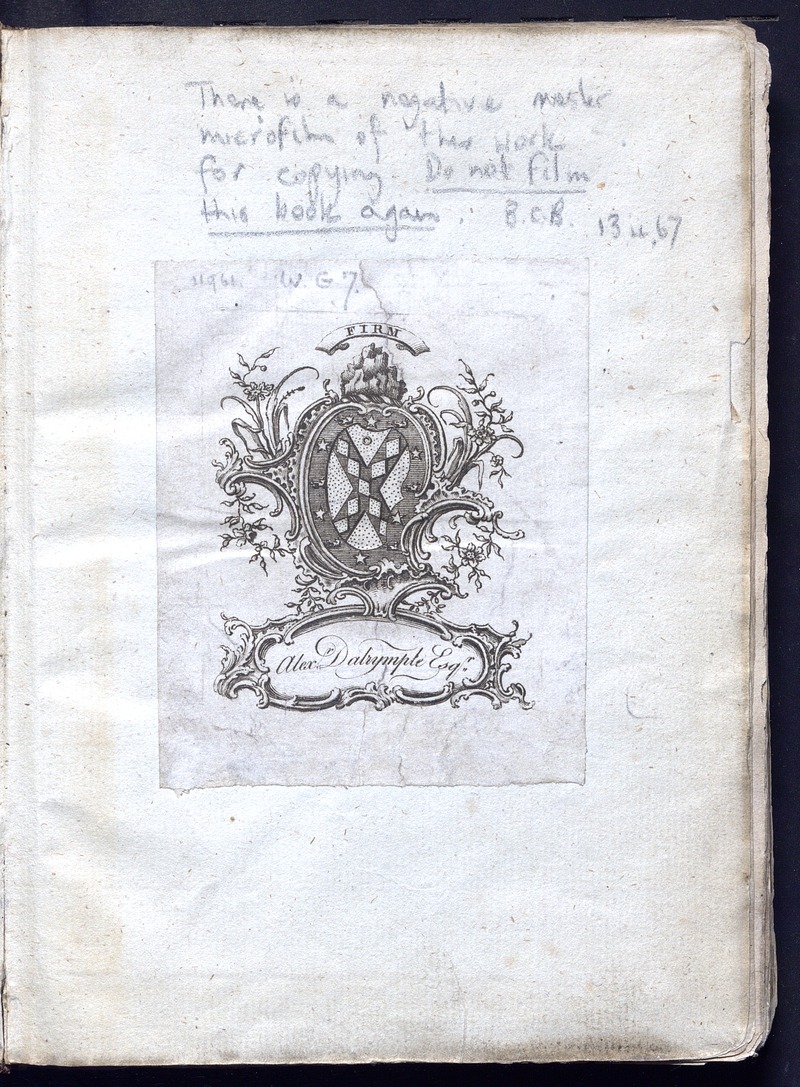 There is a negative master
microfilm of this work
for copying. Do not film
this book again. B.C.B. 13 ii, 67
11961. W. G 7.
FIRM
Alexr. Dalrymple Esqr.